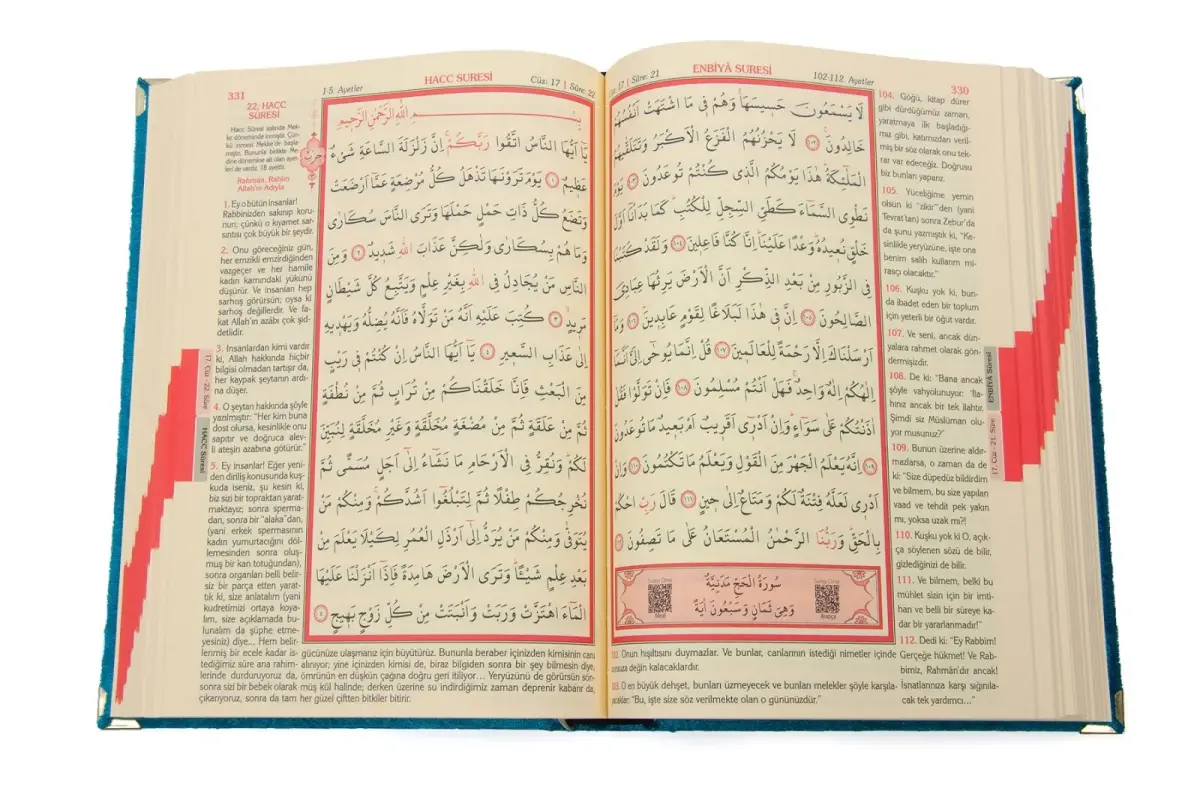 17 | Sûre: 21 ENBİYÂ SURESİ 102-112. Ayetler 330
لَا يَسْمَعُونَ حَسِيسَهَا وَهُمْ فِى مَا اشْتَهَتْ اَنْفُسُهُمْ
خَالِدُونَ ﴿١٠٢﴾ لَا يَحْزُنُهُمُ الْفَزَعُ الْاَكْبَرُ وَتَتَلَقّٰيهُمُ
الْمَلٰٓئِكَةُ هٰذَا يَوْمُكُمُ الَّذِى كُنْتُمْ تُوعَدُونَ ﴿١٠٣﴾ يَوْمَ
نَطْوِى السَّمَٓاءَ كَطَىِّ السِّجِلِّ لِلْكُتُبِ كَمَا بَدَاْنَٓا اَوَّلَ
خَلْقٍ نُعِيدُهُ وَعْدًا عَلَيْنَا اِنَّا كُنَّا فَاعِلِينَ ﴿١٠٤﴾ وَلَقَدْ كَتَبْنَا
فِى الزَّبُورِ مِنْ بَعْدِ الذِّكْرِ اَنَّ الْاَرْضَ يَرِثُهَا عِبَادِىَ
الصَّالِحُونَ ﴿١٠٥﴾ اِنَّ فِى هٰذَا لَبَلَاغًا لِقَوْمٍ عَابِدِينَ ﴿١٠٦﴾ وَمَٓا
اَرْسَلْنَاكَ اِلَّا رَحْمَةً لِلْعَالَمِينَ ﴿١٠٧﴾ قُلْ اِنَّمَا يُوحٰٓى اِلَىَّ اَنَّمَٓا
اِلٰهُكُمْ اِلٰهٌ وَاحِدٌ فَهَلْ اَنْتُمْ مُسْلِمُونَ ﴿١٠٨﴾ فَاِنْ تَوَلَّوْا فَقُلْ
اٰذَنْتُكُمْ عَلٰى سَوَٓاءٍ وَاِنْ اَدْرِٓى اَقَرِيبٌ اَمْ بَعِيدٌ مَا تُوعَدُونَ
﴿١٠٩﴾ اِنَّهُ يَعْلَمُ الْجَهْرَ مِنَ الْقَوْلِ وَيَعْلَمُ مَا تَكْتُمُونَ ﴿١١٠﴾ وَاِنْ
اَدْرِى لَعَلَّهُ فِتْنَةٌ لَكُمْ وَمَتَاعٌ اِلٰى حِينٍ ﴿١١١﴾ قَالَ رَبِّ احْكُمْ
بِالْحَقِّ وَرَبُّنَا الرَّحْمٰنُ الْمُسْتَعَانُ عَلٰى مَا تَصِفُونَ ﴿١١٢﴾
سُورَةُ الْحَجِّ مَدَنِيَّةٌ
وَهِىَ ثَمَانٍ وَسَبْعُونَ اٰيَةً
104. Göğü, kitap dürer
gibi dürdüğümüz zaman,
yaratmaya ilk başladığı-
mız gibi, katımızdan veril-
miş bir söz olarak onu tek-
rar var edeceğiz. Doğrusu
biz bunları yaparız.
105. Yüceliğime yemin
olsun ki "zikir"den (yani
Tevrat'tan) sonra Zebur'da
da şunu yazmıştık ki, "Ke-
sinlikle yeryüzüne, işte ona
benim salih kullarım mi-
rasçı olacaktır."
106. Kuşku yok ki, bun-
da ibadet eden bir toplum
için yeterli bir öğut vardır.
107. Ve seni, ancak dün-
yalara rahmet olarak gön-
dermişizdir.
108. De ki: "Bana ancak
şöyle vahyolunuyor: "İla-
hınız ancak bir tek ilahtır.
Şimdi siz Müslüman olu-
yor musunuz?"
109. Bunun üzerine aldır-
mazlarsa, o zaman da de
ki: "Size düpedüz bildirdim
ve bilmem, bu size yapılan
vaad ve tehdit pek yakın
mı, yoksa uzak mı?!
110. Kuşku yok ki O, açık-
ça söylenen sözü de bilir,
gizlediğinizi de bilir.
111. Ve bilmem, belki bu
mühlet sizin için bir imti-
han ve belli bir süreye ka-
dar bir yararlanmadır!"
112. Dedi ki: "Ey Rabbim!
Gerçeğe hükmet! Ve Rab-
bimiz, Rahmân'dır ancak!
İsnatlarınıza karşı sığınıla-
cak tek yardımcı..."
102. Onun hışıltısını duymazlar. Ve bunlar, canlarının istediği nimetler içinde
sonsuza değin kalacaklardır.
103. O en büyük dehşet, bunları üzmeyecek ve bunları melekler şöyle karşıla-
yacaklar: "Bu, işte size söz verilmekte olan o gününüzdür."
ENBİYÂ Sûresi
17. Cüz - 21. Sûre
331 1-5. Ayetler HACC SURESİ Cüz: 17 | Sûre: 22
بِسْمِ اللّٰهِ الرَّحْمٰنِ الرَّحِيمِ
يَٓا اَيُّهَا النَّاسُ اتَّقُوا رَبَّكُمْ اِنَّ زَلْزَلَةَ السَّاعَةِ شَىْءٌ
عَظِيمٌ ﴿١﴾ يَوْمَ تَرَوْنَهَا تَذْهَلُ كُلُّ مُرْضِعَةٍ عَمَّٓا اَرْضَعَتْ
وَتَضَعُ كُلُّ ذَاتِ حَمْلٍ حَمْلَهَا وَتَرَى النَّاسَ سُكَارٰى
وَمَا هُمْ بِسُكَارٰى وَلٰكِنَّ عَذَابَ اللّٰهِ شَدِيدٌ ﴿٢﴾ وَمِنَ
النَّاسِ مَنْ يُجَادِلُ فِى اللّٰهِ بِغَيْرِ عِلْمٍ وَيَتَّبِعُ كُلَّ شَيْطَانٍ
مَرِيدٍ ﴿٣﴾ كُتِبَ عَلَيْهِ اَنَّهُ مَنْ تَوَلَّاهُ فَاَنَّهُ يُضِلُّهُ وَيَهْدِيهِ
اِلٰى عَذَابِ السَّعِيرِ ﴿٤﴾ يَٓا اَيُّهَا النَّاسُ اِنْ كُنْتُمْ فِى رَيْبٍ
مِنَ الْبَعْثِ فَاِنَّا خَلَقْنَاكُمْ مِنْ تُرَابٍ ثُمَّ مِنْ نُطْفَةٍ
ثُمَّ مِنْ عَلَقَةٍ ثُمَّ مِنْ مُضْغَةٍ مُخَلَّقَةٍ وَغَيْرِ مُخَلَّقَةٍ لِنُبَيِّنَ
لَكُمْ وَنُقِرُّ فِى الْاَرْحَامِ مَا نَشَٓاءُ اِلٰٓى اَجَلٍ مُسَمًّى ثُمَّ
نُخْرِجُكُمْ طِفْلًا ثُمَّ لِتَبْلُغُٓوا اَشُدَّكُمْ وَمِنْكُمْ مَنْ
يُتَوَفّٰى وَمِنْكُمْ مَنْ يُرَدُّ اِلٰٓى اَرْذَلِ الْعُمُرِ لِكَيْلَا يَعْلَمَ مِنْ
بَعْدِ عِلْمٍ شَيْئًا وَتَرَى الْاَرْضَ هَامِدَةً فَاِذَٓا اَنْزَلْنَا عَلَيْهَا
الْمَٓاءَ اهْتَزَّتْ وَرَبَتْ وَاَنْبَتَتْ مِنْ كُلِّ زَوْجٍ بَهِيجٍ ﴿٥﴾
حزب
22. HACC
SÛRESİ
Hacc Sûresi aslında Mek-
ke döneminde inmiştir. Çün-
kü inmesi Mekke'de başla-
mıştır. Bununla birlikte Me-
dine dönemine ait olan ayet-
leri de vardır. 78 ayettir.
Rahmân, Rahîm
Allah'ın Adıyla
1. Ey o bütün insanlar!
Rabbinizden sakınıp koru-
nun; çünkü o kıyamet sar-
sıntısı çok büyük bir şeydir.
2. Onu göreceğiniz gün,
her emzikli emzirdiğinden
vazgeçer ve her hamile
kadın karnındaki yükünü
düşürür. Ve insanları hep
sarhoş görürsün; oysa ki
sarhoş değillerdir. Ve fa-
kat Allah'ın azâbı çok şid-
detlidir.
3. İnsanlardan kimi vardır
ki, Allah hakkında hiçbir
bilgisi olmadan tartışır da,
her kaypak şeytanın ardı-
na düşer.
4. O şeytan hakkında şöyle
yazılmıştır: "Her kim buna
dost olursa, kesinlikle onu
sapıtır ve doğruca alev-
li ateşin azabına götürür."
5. Ey insanlar! Eğer yeni-
den diriliş konusunda kuş-
kuda iseniz, şu kesin ki,
biz sizi bir topraktan yarat-
maktayız; sonra sperma-
dan, sonra bir "alaka"dan,
(yani erkek spermasının
kadın yumurtacığını döl-
lemesinden sonra oluş-
muş bir kan totuğundan),
sonra organları belli belir-
siz bir parça etten yarat-
tık ki, size anlatalım (yani
kudretimizi ortaya koya-
lım, size açıklamada bu-
lunalım da şüphe etme-
yesiniz) diye... Hem belir-
lenmiş bir ecele kadar is-
tediğimiz süre ana rahim-
lerinde durduruyoruz da,
sonra sizi bir bebek olarak
çıkarıyoruz, sonra da tam
gücünüze ulaşmanız için büyütürüz. Bununla beraber içinizden kimisinin canı
alınıyor; yine içinizden kimisi de, biraz bilgiden sonra bir şey bilmesin diye,
ömrünün en düşkün çağına doğru geri itiliyor... Yeryüzünü de görürsün sön-
müş kül halinde; derken üzerine su indirdiğimiz zaman deprenir kabarır da,
her güzel çiftten bitkiler bitirir.
17. Cüz - 22. Sûre
HACC Sûresi